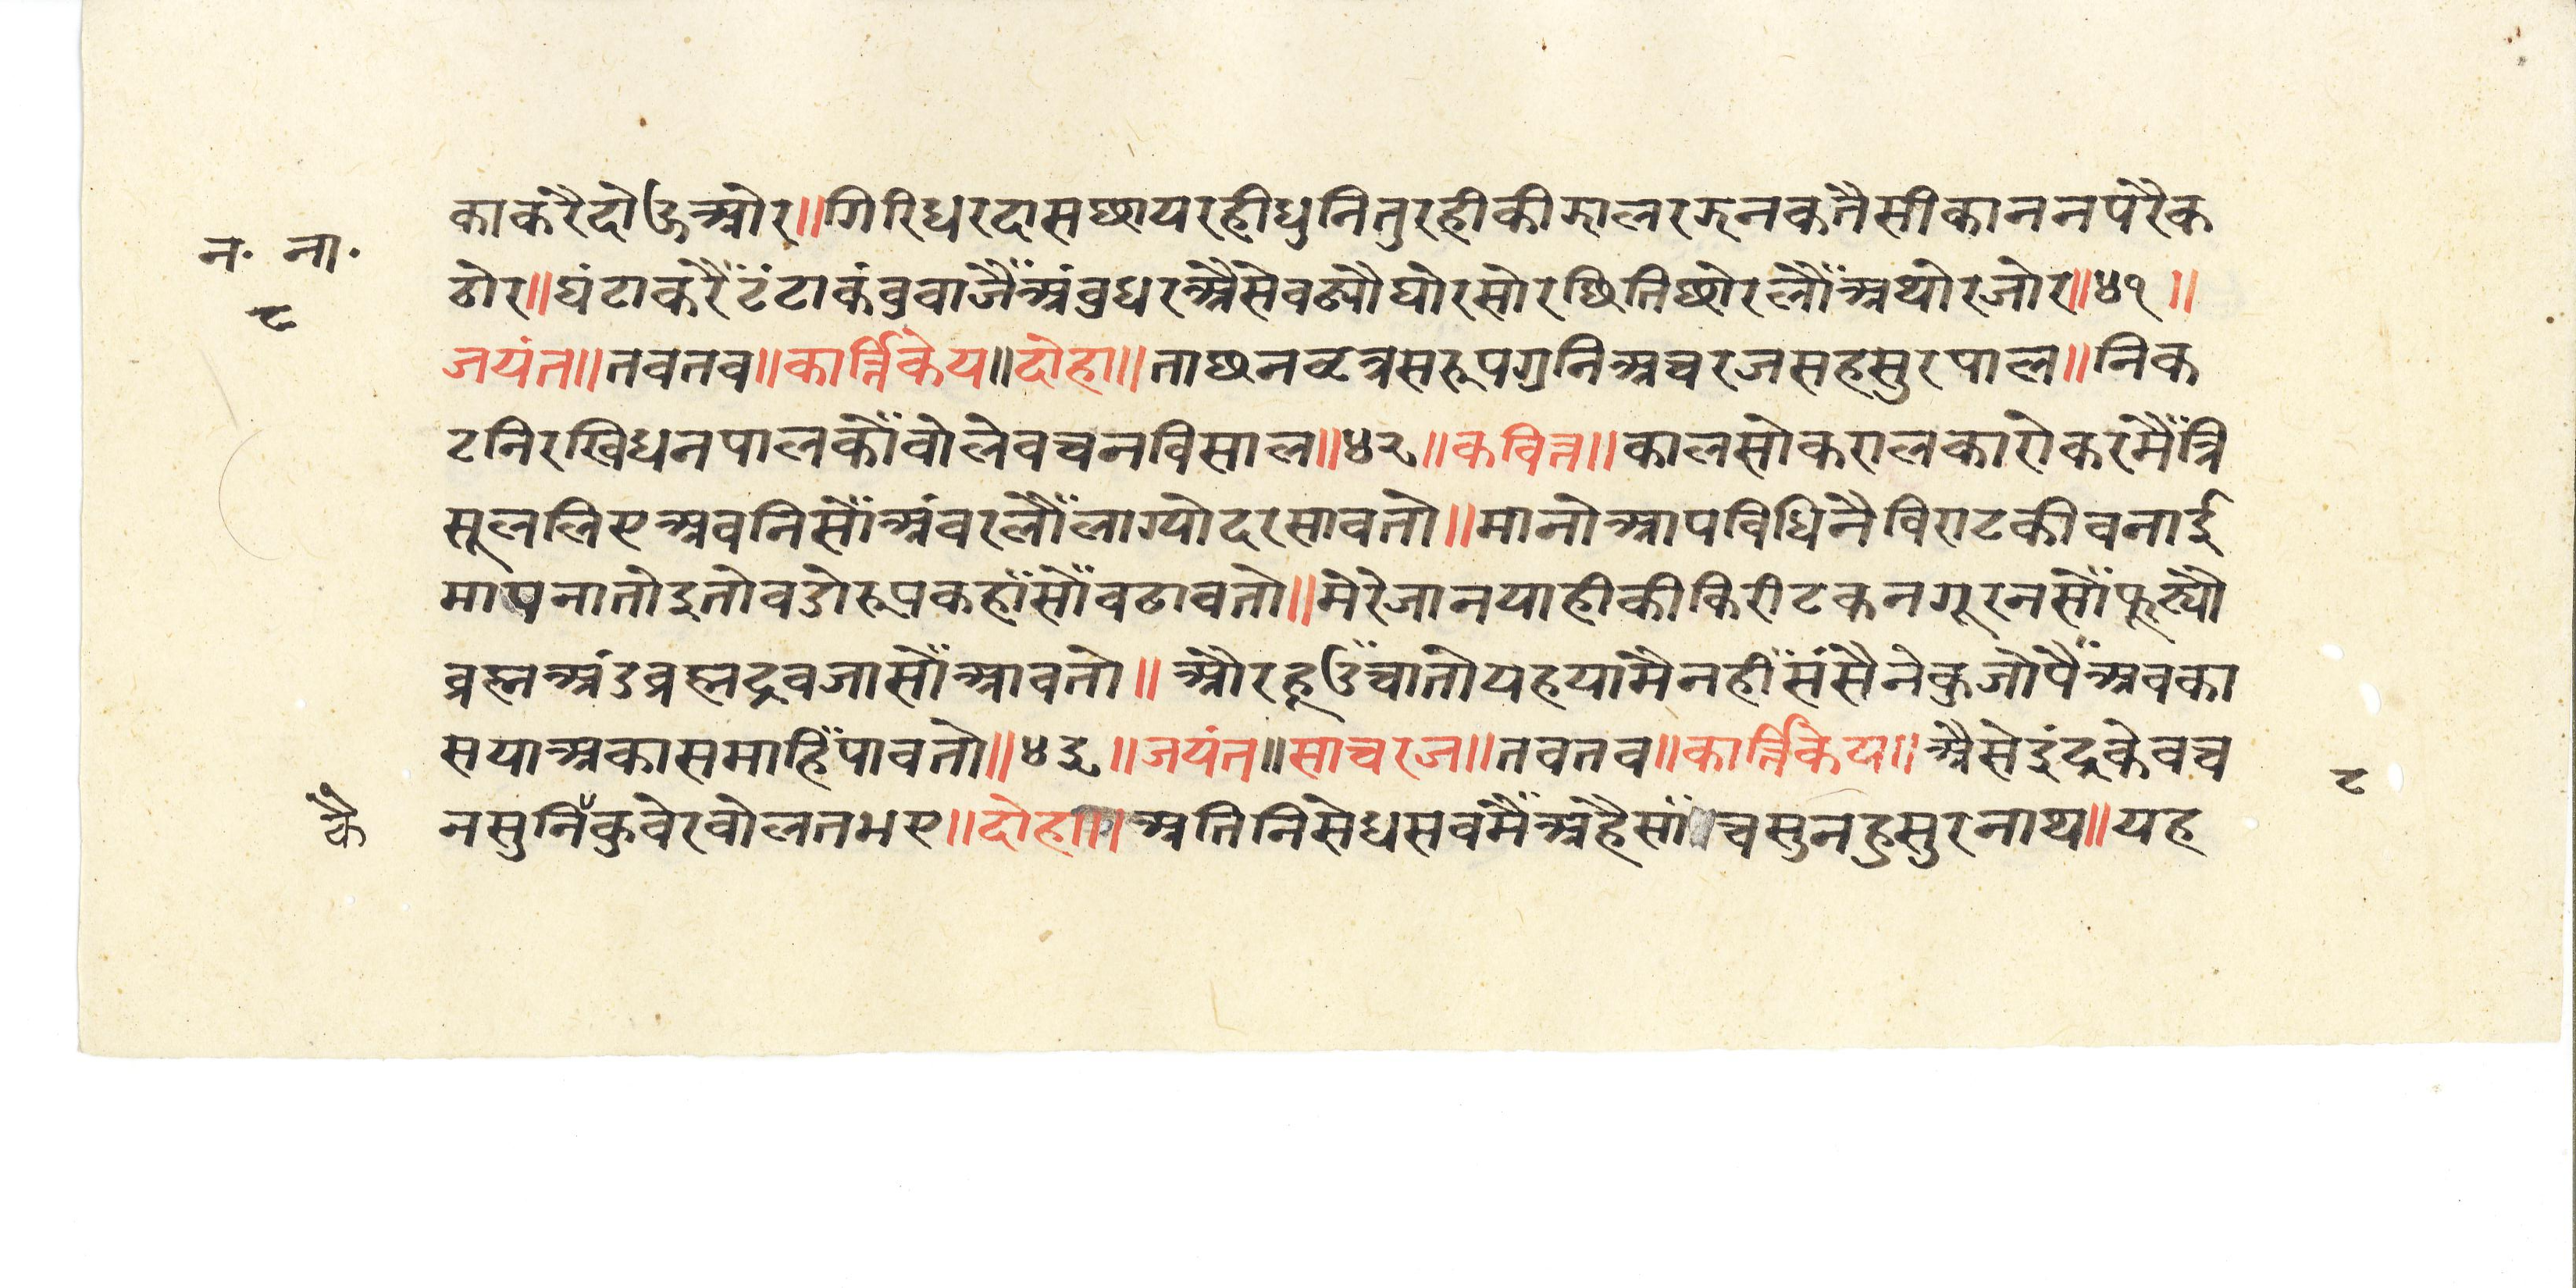 न॰ ना॰
८
काकरैदोऊओर॥गिरिधरदासछायरहीधुनितुरहीकीझालरझनकतैसीकाननपरैक
ठोर॥घंटाकरैंटंटाकंवुवाजैंअंवुधरअैसेवढ्यौघोरसोरछितिछोरलौंअथोरजोर॥४१॥
जयंत॥तवतव॥कार्त्तिकेय॥दोहा॥ताछनछत्रसरूपगुनिअचरजसहसुरपाल॥निक
टनिरखिधनपालकौंवोलेवचनविसाल॥४२॥कवित्त॥कालसोकरालकारोकरमैंत्रि
सूललिएअवनिसौंअंवरलौंलाग्योदरसावतो॥मानोआपविधिनैविराटकीवनाई
मापनातोइतोवडोरूपकहाँसौंवढावतो॥मेरेजानयाहीकीकिरीटकनगूरनसौंफूट्यौ
व्रह्मअंडव्रह्मद्रवजासौंआवतो॥औरहूउँचातोयहयामैनहींसंसैनेकुजोपैंअवका
सयाअकासमाहिंपावतो॥४३॥जयंत॥साचरज॥तवतव॥कार्त्तिकेय॥अैसेइंद्रकेवच
नसुनिँकुवेरवोलतभए॥दोहा॥अतिनिसेधसवमैंअहैसाँचसुनहुसुरनाथ॥यह
कै
८